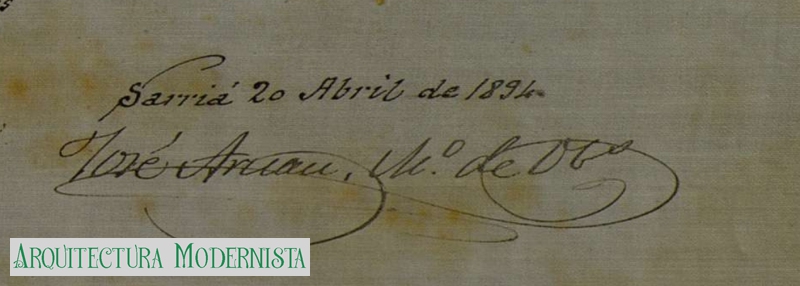 Sarriá 20 Abril de 1894
José Arnau, M.º de Obs
ARQUITECTURA MODERNISTA